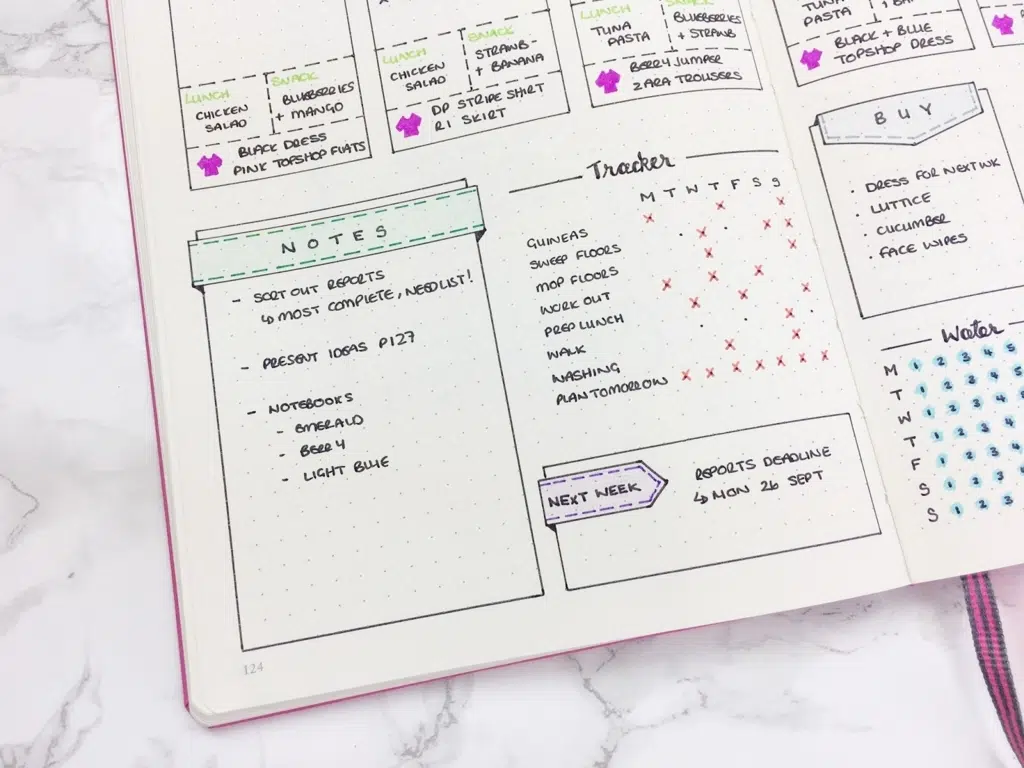 LUNCH SNACK
CHICKEN SALAD BLUEBERRIES + MANGO
BLACK DRESS
PINK TOPSHOP FLATS
LUNCH SNACK
CHICKEN SALAD STRAWB- + BANANA
DP STRIPE SHIRT
RI SKIRT
LUNCH SNACK
TUNA PASTA BLUEBERRIES + STRAWB
BERRY JUMPER
ZARA TROUSERS
TUNA
PASTA
BLACK + BLUE
TOPSHOP DRESS
NOTES
- SORT OUT REPORTS
↳ MOST COMPLETE, NEED LIST!
- PRESENT IDEAS P127
- NOTEBOOKS
- EMERALD
- BERRY
- LIGHT BLUE
Tracker
M T W T F S S
GUINEAS
SWEEP FLOORS
MOP FLOORS
WORK OUT
PREP LUNCH
WALK
WASHING
PLAN TOMORROW
NEXT WEEK
REPORTS DEADLINE
↳ MON 26 SEPT
BUY
· DRESS FOR NEXT WK
· LUTTICE
· CUCUMBER
· FACE WIPES
Water
M 1 2 3 4 5
T 1 2 3 4 5
W 1 2 3 4 5
T 1 2 3 4
F 1 2 3 4
S 1 2 3 4
S 1 2 3
124